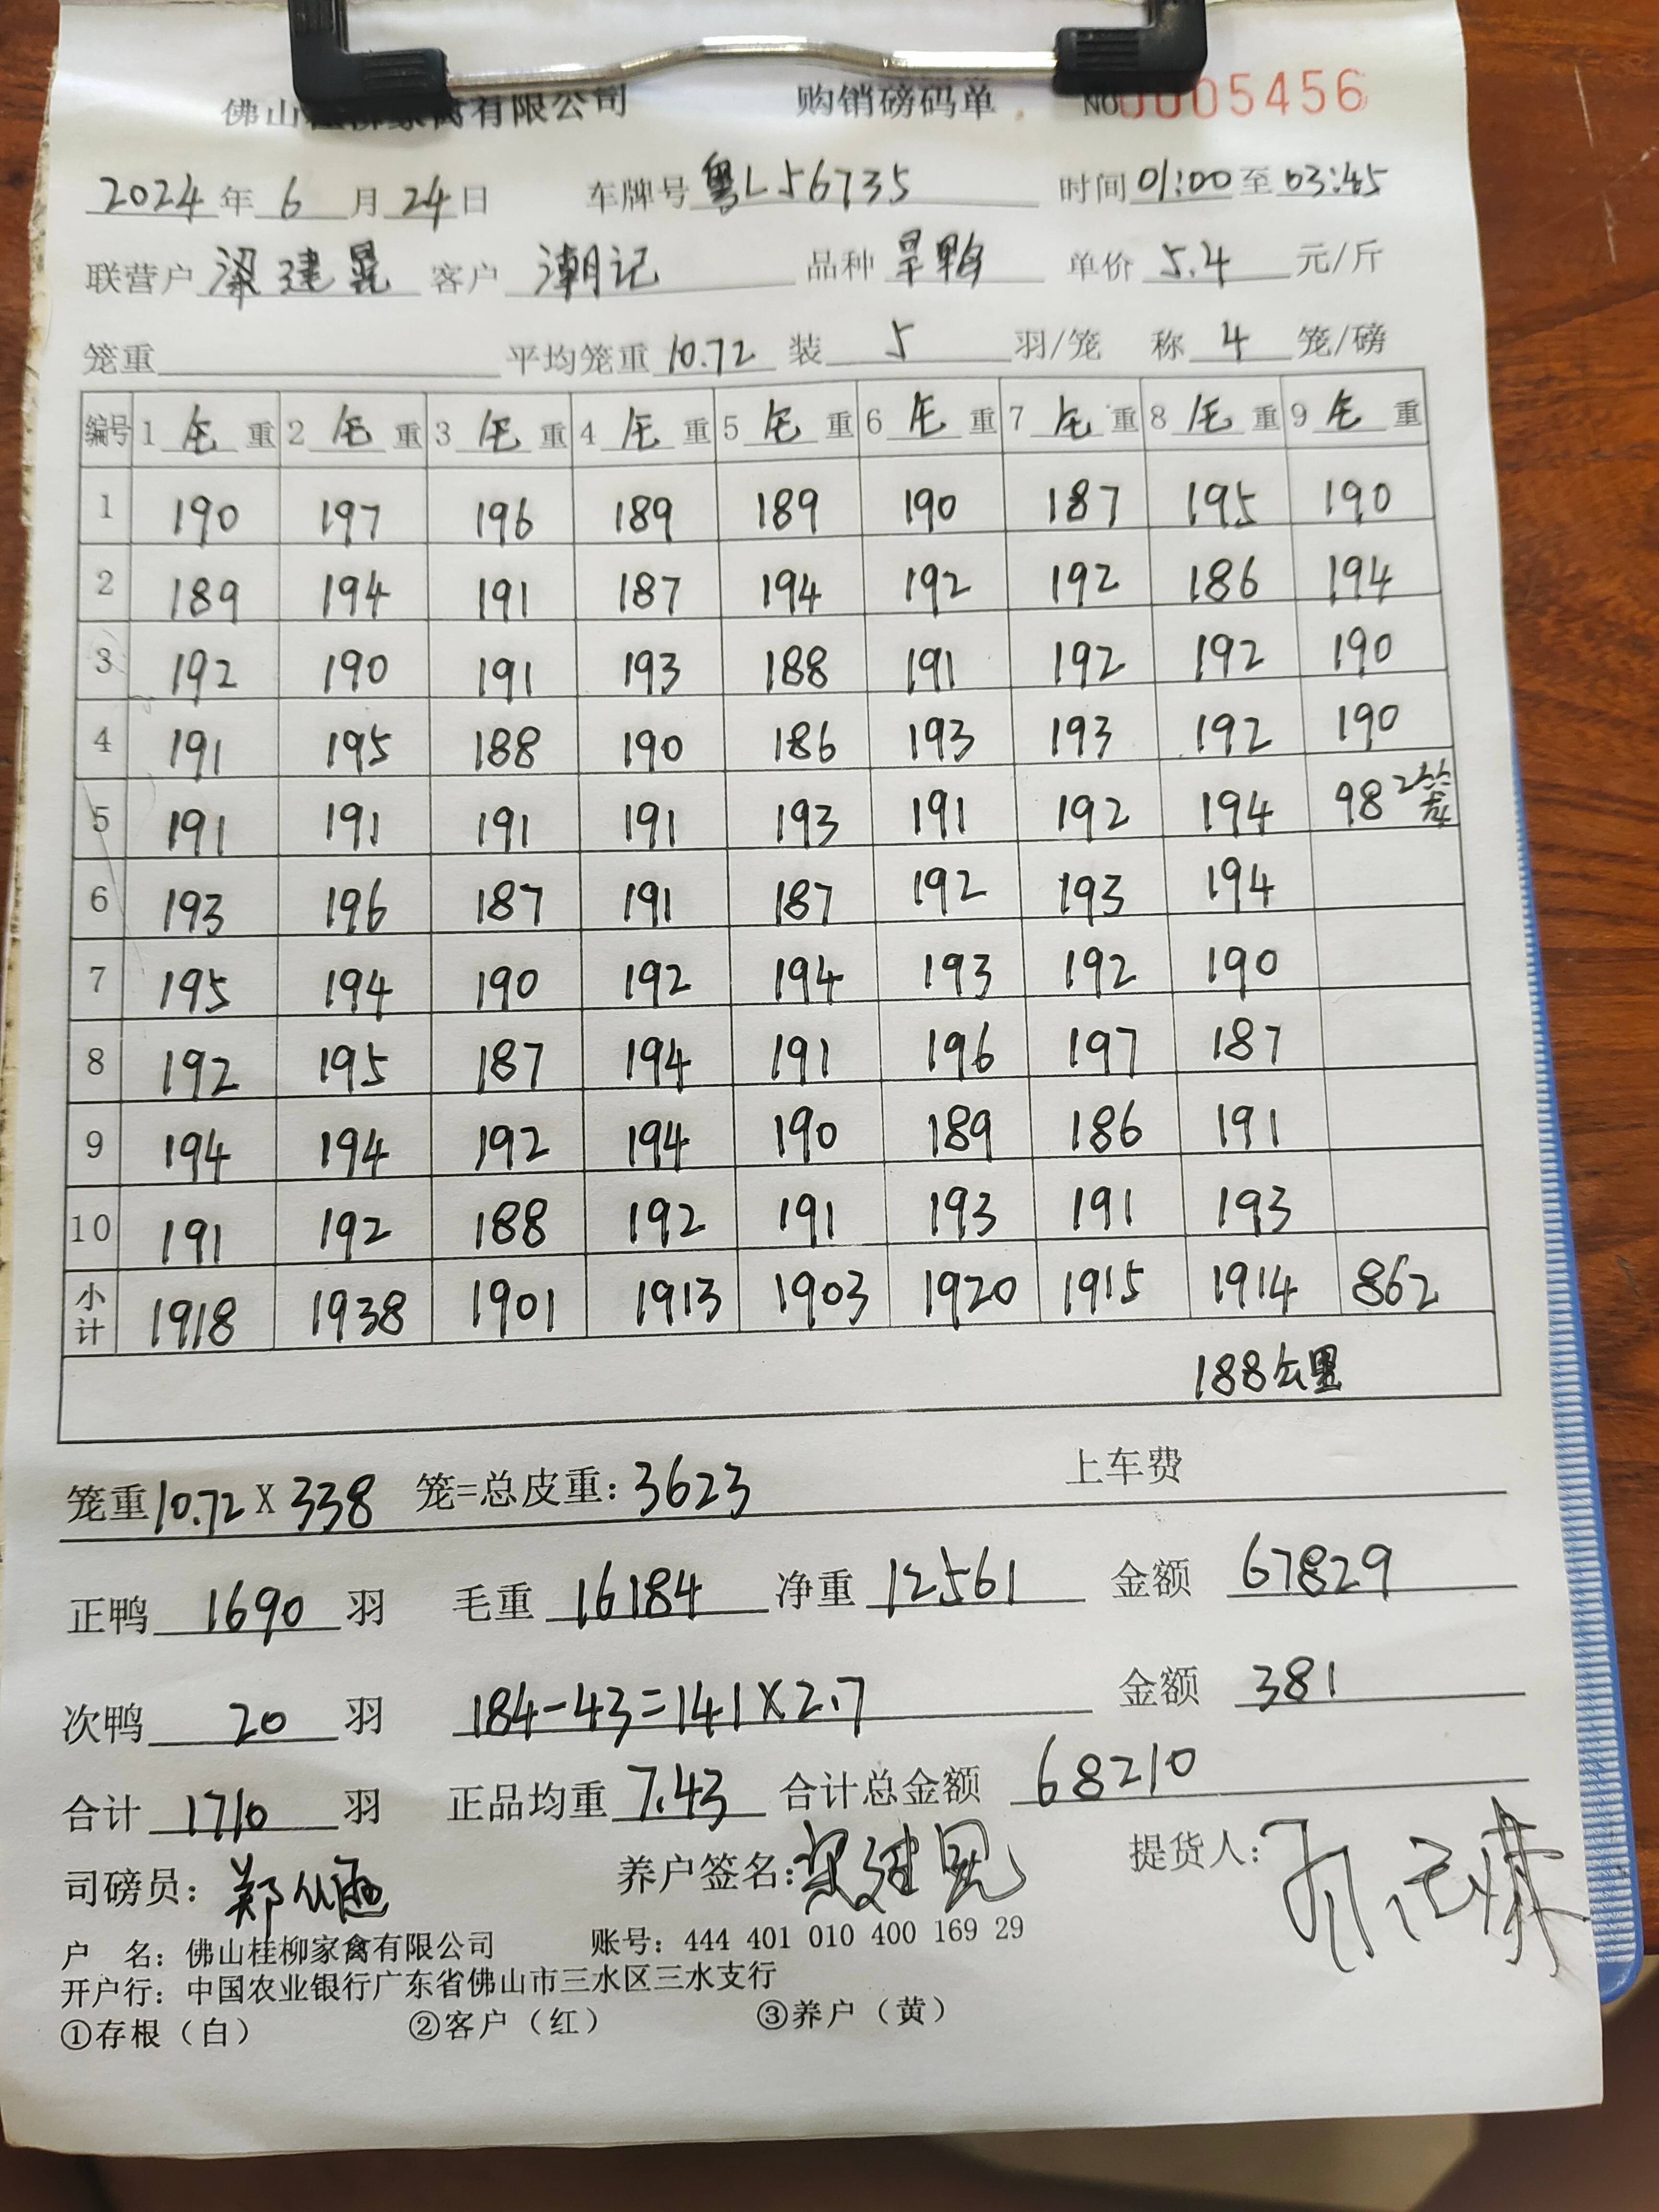 佛山桂柳家禽有限公司 购销磅码单 NO 0005456
2024年 6 月 24 日 车牌号 粤L56735 时间 01:00 至 03:45
联营户 梁建晃 客户 潮记 品种 旱鸭 单价 5.4 元/斤
笼重 平均笼重 10.72 装 5 羽/笼 称 4 笼/磅
编号 1 毛 重 2 毛 重 3 毛 重 4 毛 重 5 毛 重 6 毛 重 7 毛 重 8 毛 重 9 毛 重
1 190 197 196 189 189 190 187 195 190
2 189 194 191 187 194 192 192 186 194
3 192 190 191 193 188 191 192 192 190
4 191 195 188 190 186 193 193 192 190
5 191 191 191 191 193 191 192 194 98 2
6 193 196 187 191 187 192 193 194
7 195 194 190 192 194 193 192 190
8 192 195 187 194 191 196 197 187
9 194 194 192 194 190 189 186 191
10 191 192 188 192 191 193 191 193
小计 1918 1938 1901 1913 1903 1920 1915 1914 862
188公里
笼重 10.72 X 338 笼=总皮重: 3623 上车费
正鸭 1690 羽 毛重 16184 净重 12561 金额 67829
次鸭 20 羽 184-43=141X2.7 金额 381
合计 1710 羽 正品均重 7.43 合计总金额 68210
司磅员: 郑 养户签名: 梁建晃 提货人:
户 名: 佛山桂柳家禽有限公司 账号: 444 401 010 400 169 29
开户行: 中国农业银行广东省佛山市三水区三水支行
①存根（白） ②客户（红） ③养户（黄）